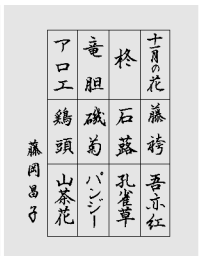 十一月の花
藤袴
吾亦紅
柊
石蕗
孔雀草
竜胆
磯菊
パンジー
アロエ
鶏頭
山茶花
藤岡昌子